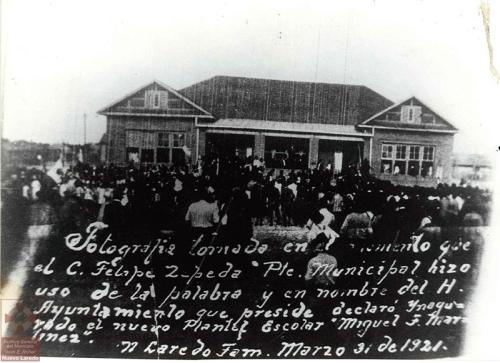 Fotografia tomada en el momento que
el C. Felipe Zepeda Pte. Municipal hizo
uso de la palabra y en nombre del H.
Ayuntamiento que preside declaró Ynaugu-
rado el nuevo Plantel Escolar "Miguel F. Mar-
tinez".
N. Laredo Tam. Marzo 31 de 1921.
Nuevo Laredo